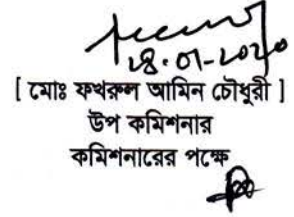 ২৪.০১-২০২০
[ মোঃ ফখরুল আমিন চৌধুরী ]
উপ কমিশনার
কমিশনারের পক্ষে